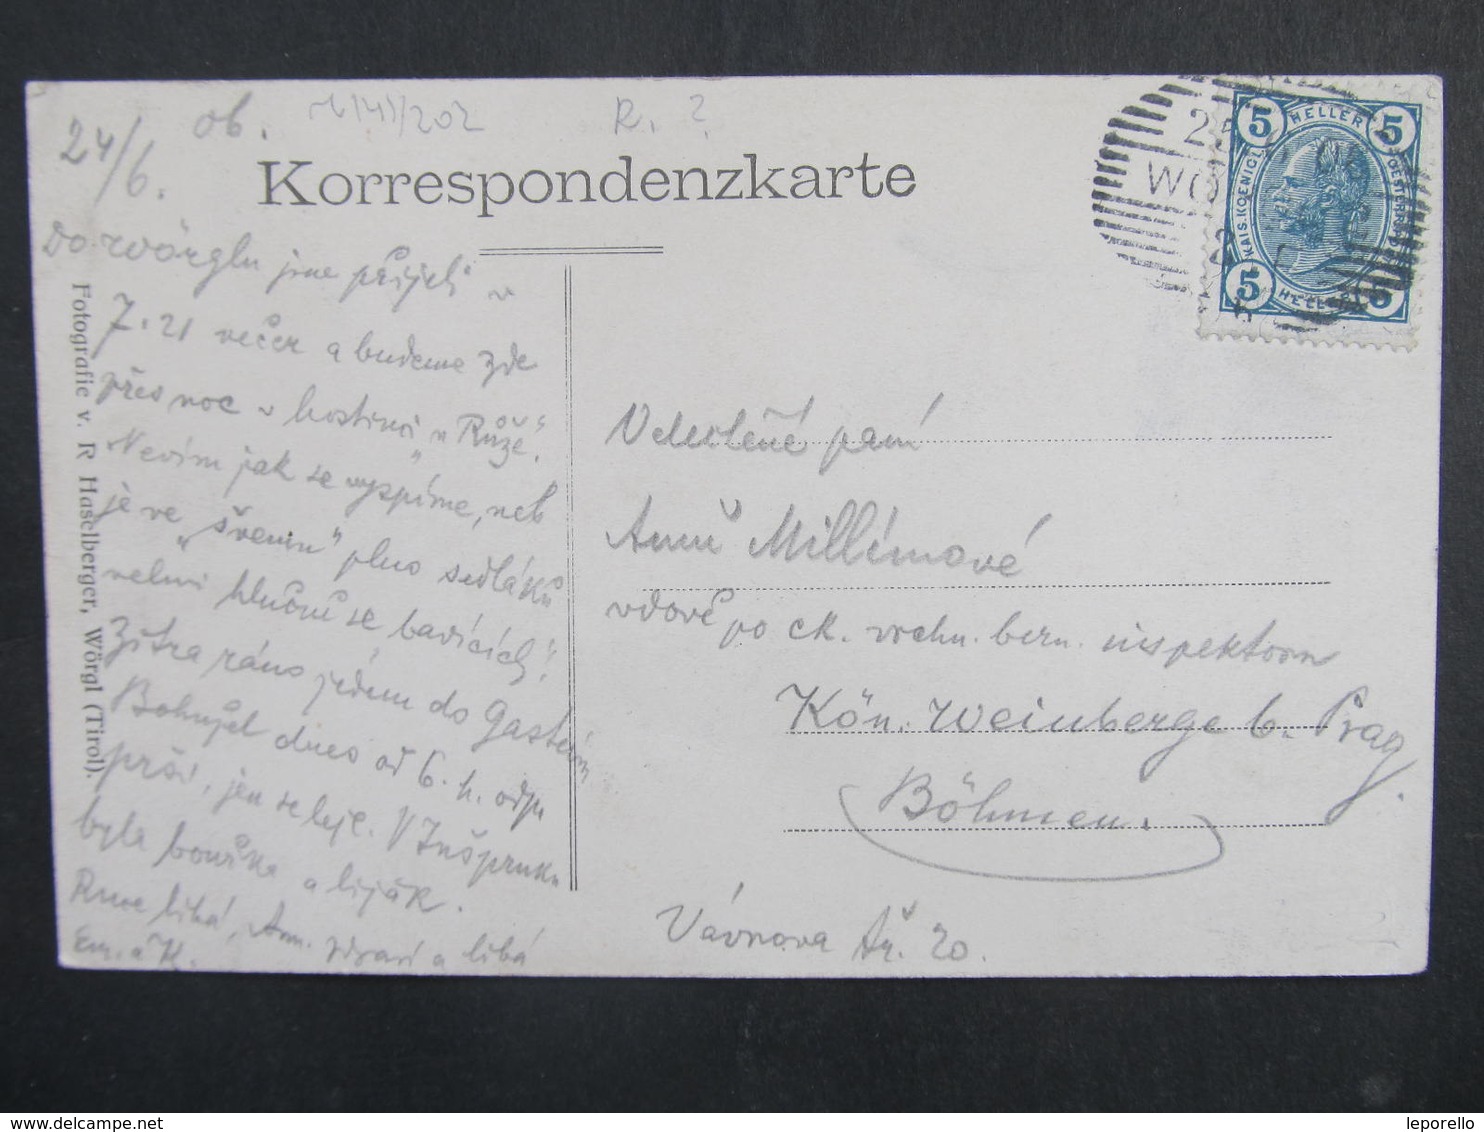 24/6. 06.
R. ?
Korrespondenzkarte
Do Wörglu jsme přijeli v
7.21 večer a budeme zde
přes noc v hostinci „u Růže“.
Nevím jak se vyspíme, neb
je ve „švemu“ plno sedláků
velmi hlučně se bavících!
Zítra ráno jedem do Gastein
Bohužel dnes od 6. h. odp.
prší, jen se leje. V Inšpruku
byla bouřka a liják.
Ruce líbá, Ann. zdraví a líbá
Em. a K.
Fotografie v. R Haselberger, Wörgl (Tirol).
25 06
WÖ
5 HELLER 5
KAIS. KOENIGL. OESTERR.
5 HELLER 5
Velectěné paní
Anně Millémové
vdově po ck. vrchn. bern. inspektoru
Kön. Weinberge b. Prag
Böhmen.
Vávrova tř. 20.
www.delcampe.net
leporello